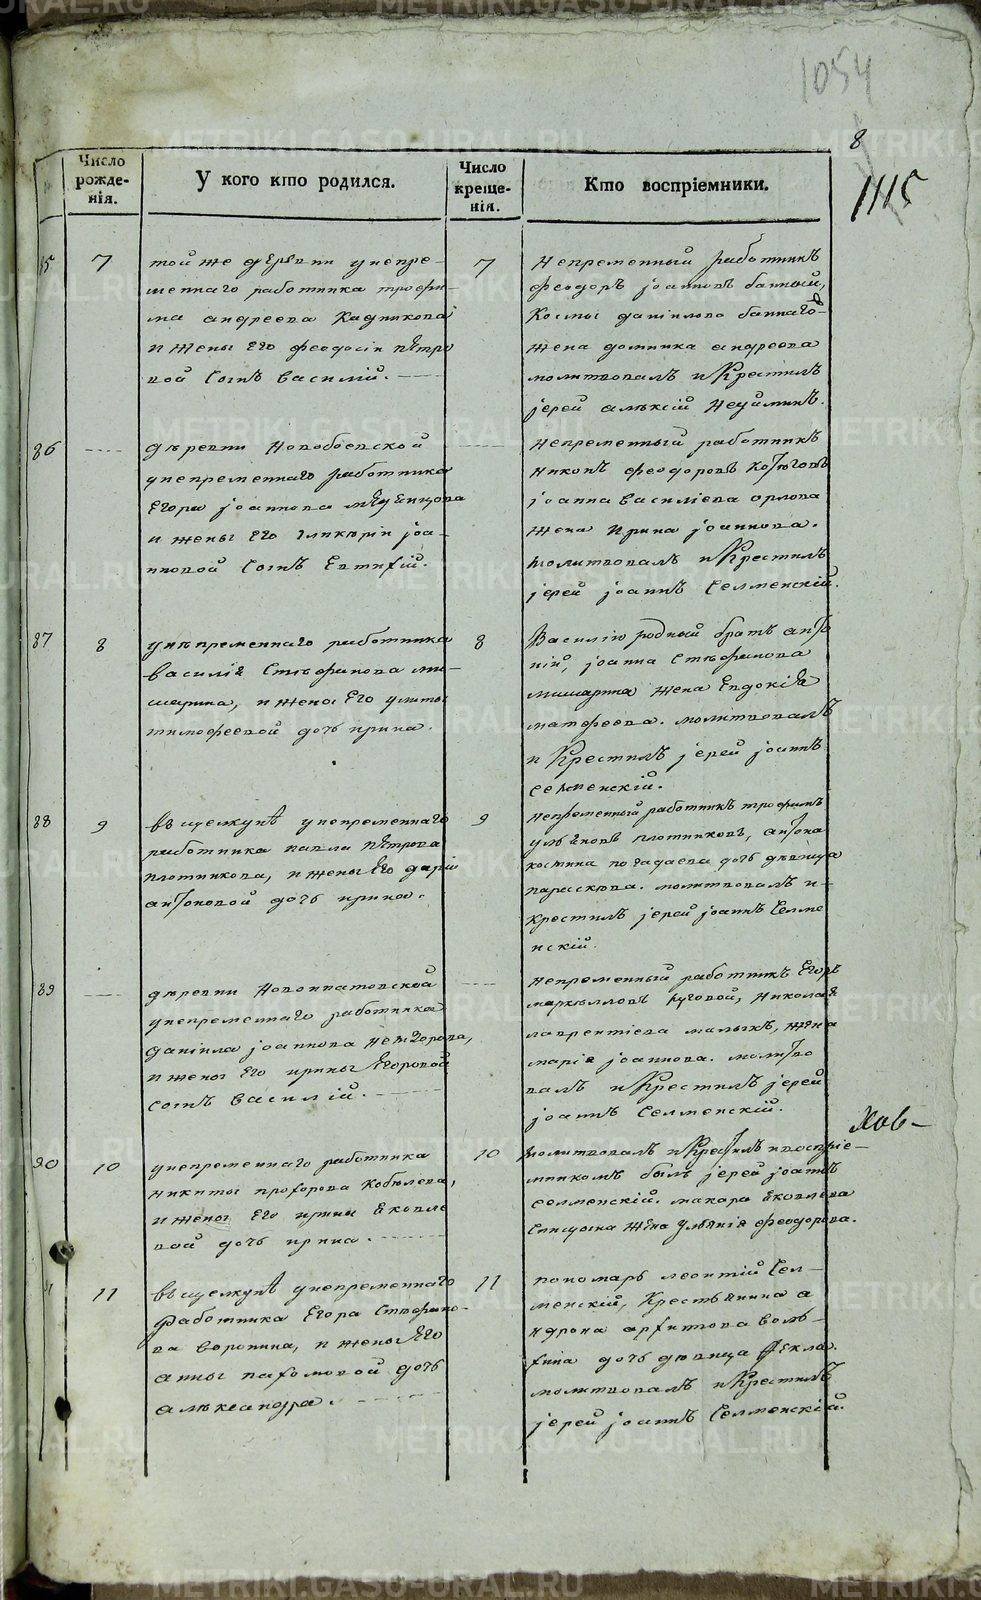 1054
8
1115
Число рожде-нія.
У кого кто родился.
Число креще-нія.
Кто воспріемники.
85
7
той же деревни у непре-
меннаго работника трофи-
ма андреева Кадникова
и жены его феодосіи петро
вой сынъ василій.
7
Непременный работникъ
феодоръ іоанновъ банный,
Космы даніилова баннаго
жена домника андреева
молитвовалъ и Крестилъ
іерей алѣксій
86
деревни Новобоевской
у непременнаго работника
Егора іоаннова
и жены его гликеріи іоа-
нновой сынъ Евтифій.
Непременный работникъ
никонъ феодоровъ
іоанна василіева орлова
жена Ирина іоаннова.
молитвовалъ и Крестилъ
іерей іоаннъ Селменскій.
87
8
у непременнаго работника
василія Стефанова ми-
шарина, и жены Его улиты
тимофеевой дочь ирина.
8
Василію родный братъ анто
ній, іоанна Стефанова
мишарина жена Евдокія
матфеева. молитвовалъ
и Крестилъ іерей іоаннъ
селменскій.
88
9
въ щелкунѣ у непременнаго
работника павла петрова
плотникова, и жены Его даріи
антоновой дочь ирина.
9
непременный работникъ трофимъ
ульяновъ плотниковъ, антона
костина погадаева дочь девица
параскева. молитвовалъ и
крестилъ іерей іоаннъ Селме
нскій.
89
деревни Новоипатовской
у непременнаго работника
даніила іоаннова
и жены Его ирины Егоровой
сынъ василій.
непременный работникъ Егоръ
маркелловъ луговой, Николая
лаврентіева малыхъ, жена
марія іоаннова. молитво
валъ и Крестилъ іерей
іоаннъ Селменскій.
Хов-
90
10
у непременнаго работника
никиты прохорова Кобелева,
и жены Его ирины Яковле
вой дочь ирина.
10
молитвовалъ и Крестилъ и воспріе-
мникомъ былъ іерей іоаннъ
селменскій. макара Яковлева
Спицына жена Ульянія феодорова.
11
въ щелкунѣ у непременнаго
работника Егора Стефано-
ва воронина, и жены Его
анны пахомовой дочь
алѣксандра.
11
пономарь леонтій Сел-
менскій, Крестьянина а
ндрона архипова воль-
хина дочь девица Фекла.
молитвовалъ и Крестилъ
іерей іоаннъ Селменскій.
METRIKI.GASO-URAL.RU